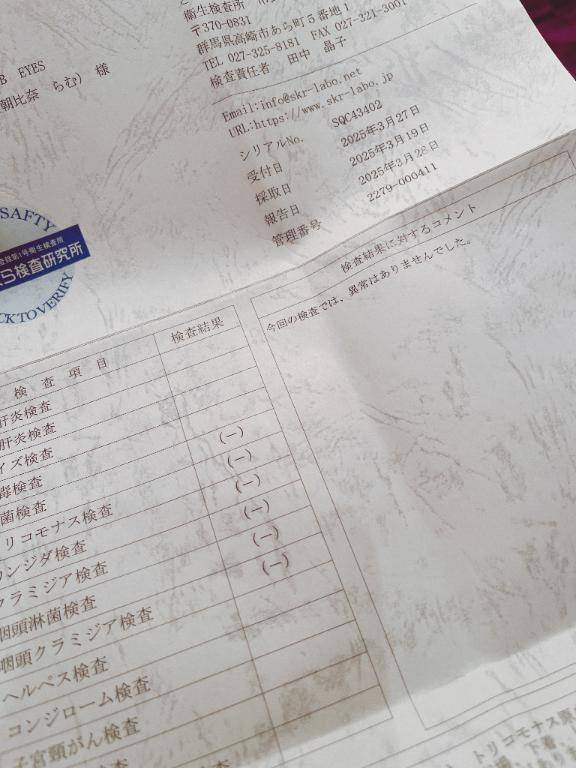 衛生検査所
〒370-0831
群馬県高崎市あら町５番地１
TEL 027-325-8181 FAX 027-321-3001
検査責任者 田中 晶子
B EYES
朝比奈 らむ） 様
Email:info@skr-labo.net
URL:https://www.skr-labo.jp
シリアルNo. SQC43402
受付日 2025年3月27日
採取日 2025年3月19日
報告日 2025年3月28日
管理番号 2279-000411
SAFTY
号衛生検査所
ら検査研究所
CKTOVERIFY
検査結果に対するコメント
今回の検査では、異常はありませんでした。
検査項目 検査結果
肝炎検査
肝炎検査
イズ検査
毒検査 (－)
菌検査 (－)
リコモナス検査 (－)
ンジダ検査 (－)
クラミジア検査 (－)
咽頭淋菌検査 (－)
咽頭クラミジア検査
ヘルペス検査
コンジローム検査
子宮頸がん検査
トリコモナス原
下着